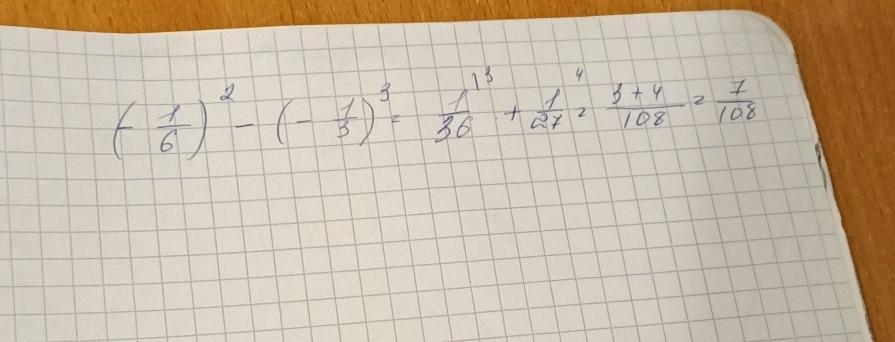 (- 1/6)² - (- 1/3)³ = 1/36 \³ + 1/27 \⁴ = 3+4/108 = 7/108